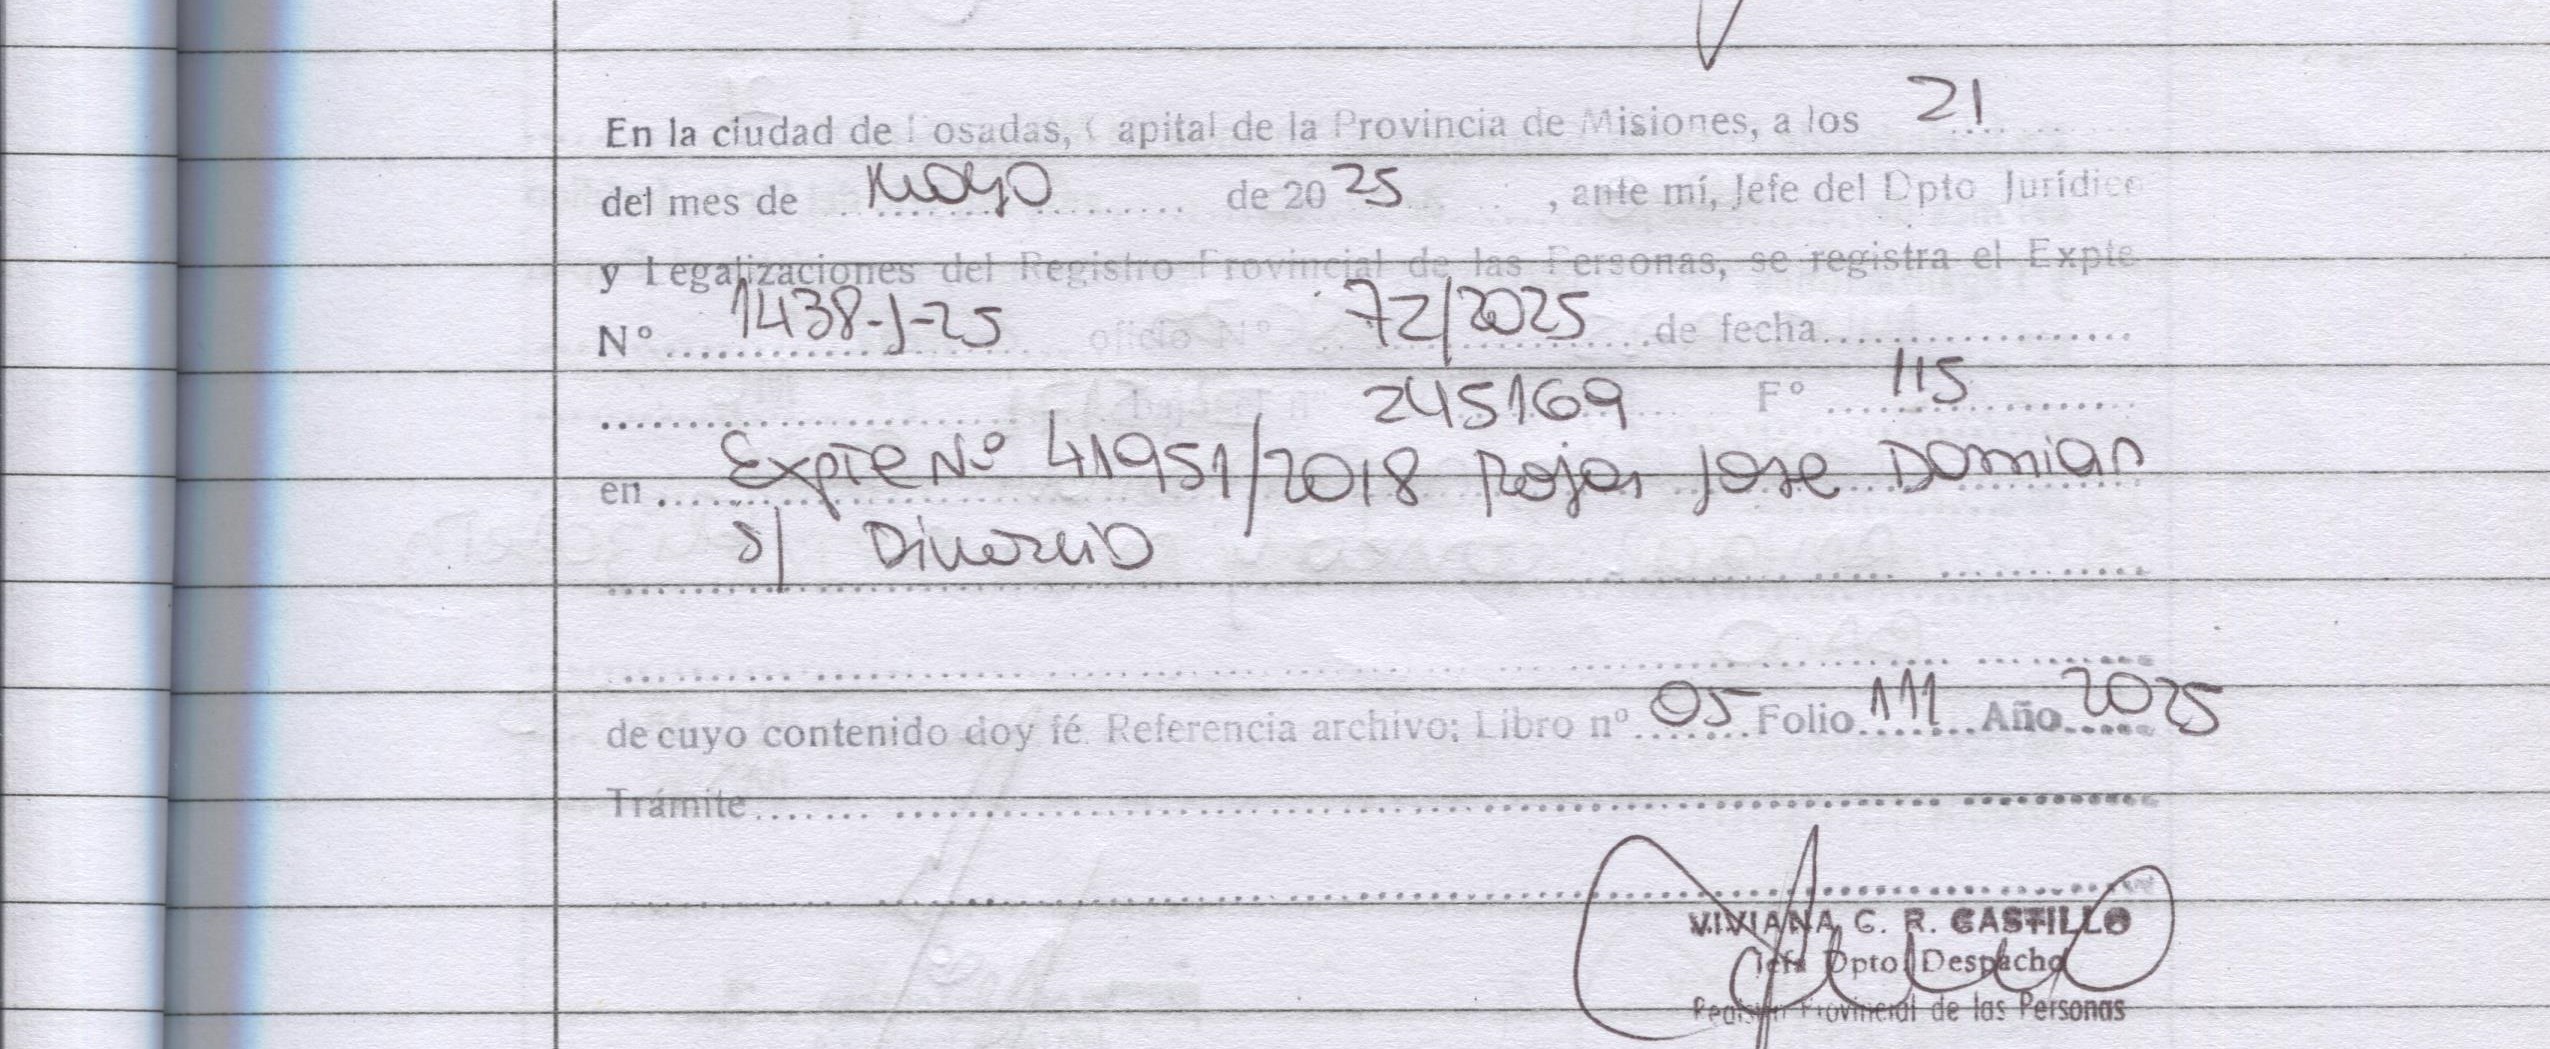 En la ciudad de Posadas, Capital de la Provincia de Misiones, a los 21
del mes de mayo de 2025, ante mí, Jefe del Dpto Jurídico
y Legalizaciones del Registro Provincial de las Personas, se registra el Expte
Nº 1438-J-25 oficio Nº 72/2025 de fecha
245169 Fº 115
en Expte Nº 41951/2018 Rojas Jose Damian
s/ Divorcio
de cuyo contenido doy fé. Referencia archivo: Libro nº 05 Folio 111 Año 2025
Trámite
VIVIANA C. R. CASTILLO
Jefe Dpto. Despacho
Registro Provincial de las Personas